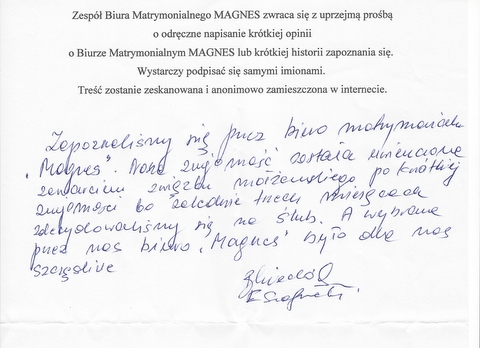 Zespół Biura Matrymonialnego MAGNES zwraca się z uprzejmą prośbą
o odręczne napisanie krótkiej opinii
o Biurze Matrymonialnym MAGNES lub krótkiej historii zapoznania się.
Wystarczy podpisać się samymi imionami.
Treść zostanie zeskanowana i anonimowo zamieszczona w internecie.
Zapoznaliśmy się przez biuro matrymonialne
"Magnes". Nasza znajomość została uwieńczona
zawarciem związku małżeńskiego po krótkiej
znajomości bo zaledwie trzech miesiącach
zdecydowaliśmy się na ślub. A wybrane
przez nas biuro "Magnes" było dla nas
szczęśliwe